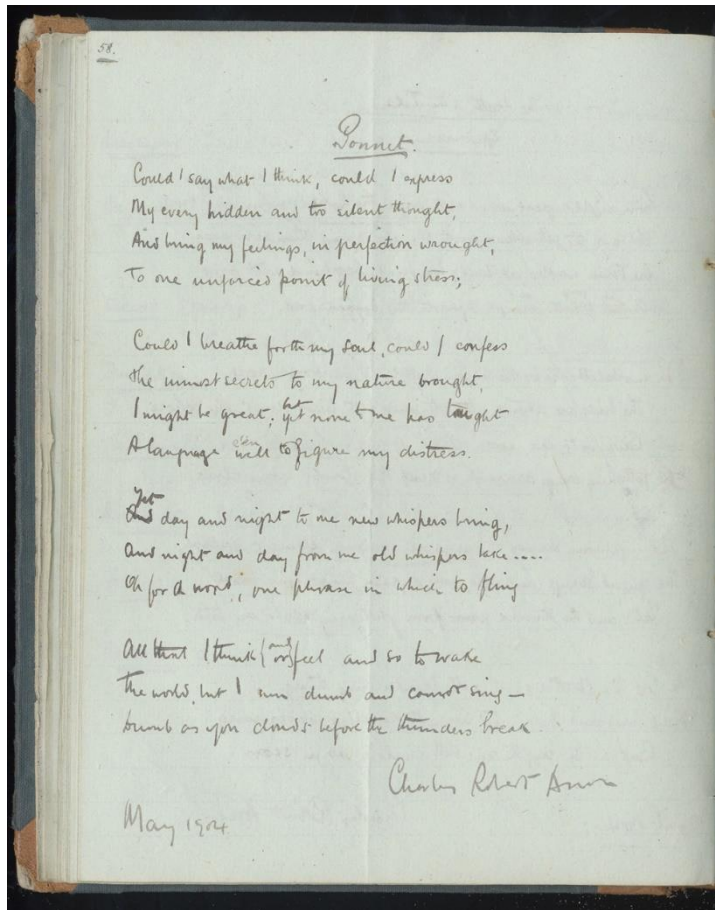 58.
Sonnet.
Could I say what I think, could I express
My every hidden and too silent thought,
And bring my feelings, in perfection wrought,
To one unforced point of living stress;
Could I breathe forth my soul, could I confess
The inmost secrets to my nature brought,
I might be great; yet but none to me has taught
A language even well to figure my distress.
And Yet day and night to me new whispers bring,
And night and day from me old whispers take....
Oh for a word, one phrase in which to fling
All that I think (or and) feel and so to wake
The world, but I am dumb and cannot sing—
Dumb as yon clouds before the thunders break.
Charles Robert
May 1904